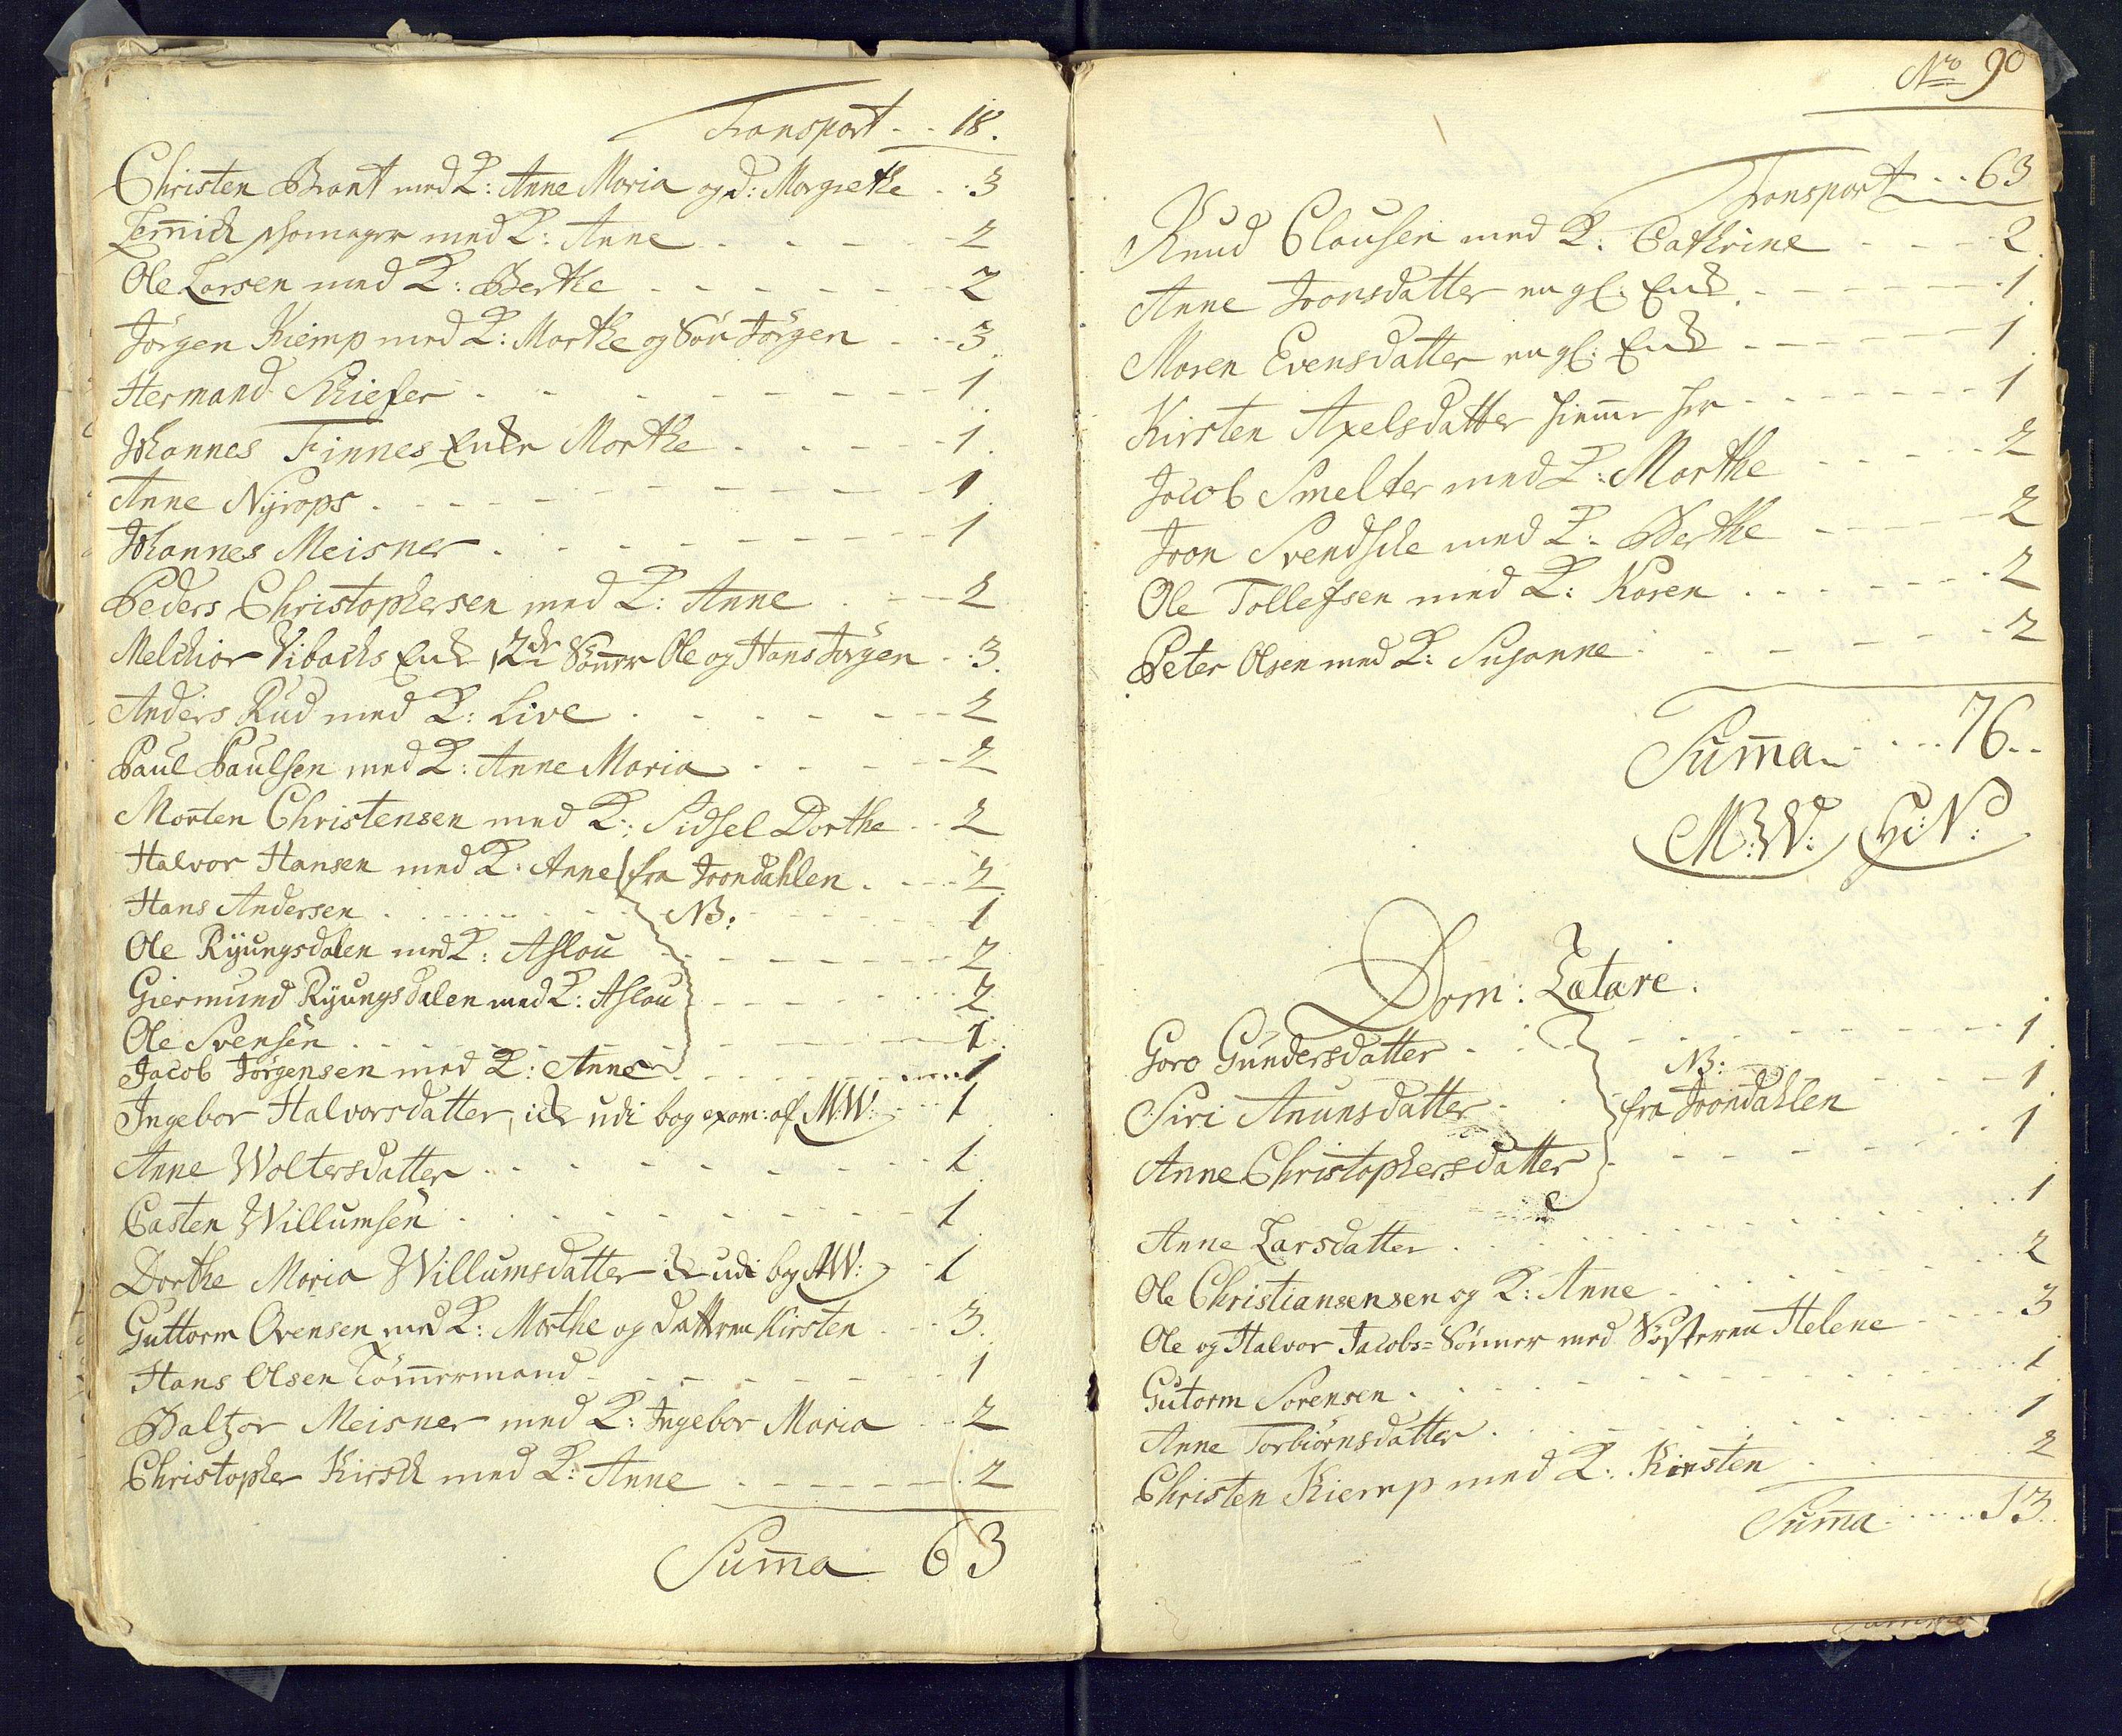 Transport - - 18.
Christen Brant med K: Anne Maria og D: Margrethe - - 3
Lennich med K: Anne - - - - 2
Ole Larsen med K: Berthe - - - - - - 2
Jörgen Kiemp med K: Marthe og Sön Jörgen - - - 3
Hermand Schiefer - - - - - - - 1
Johannes Finnes Enke Marthe - - - - 1
Anne Nÿrops - - - - - - - - - 1
Johannes Meisner - - - - - - - 1
Peders Christophersen med K: Anne - - - 2
Melchior Vibachs Enke 2de Sönner Ole og Hans Jörgen - - 3
Anders Rüd med K: Live - - - - - - 2
Paul Paulsen med K: Anne Maria - - - - - 2
Morten Christensen med K: Sidsel Dorthe - - 2
Halvor Hansen med K: Anne fra Jrondahlen - - - - 2
Hans Andersen - - - - - - NB: - - - - - 1
Ole Rÿungsdalen med K: Aslou - - - - - - 2
Giermund Rÿungsdalen med K: Aslou - - - - - 2
Ole Svensen - - - - - - - - - - 1
Jacob Jörgensen med K: Anne - - - - - 1
Ingebor Halvorsdatter, ick udi bog exam: af M:W: - - 1
Anne Woltersdatter - - - - - - - - 1
Casten Willumsen - - - - - - - - 1
Dorthe Maria Willumsdatter ick udi bog MW: - 1
Guttorm Ovensen med K: Marthe og datteren Kirsten - - 3
Hans Olsen Tömmermand - - - - - - 1
Baltzor Meisner med K: Ingebor Maria - - 2
Christopher Kirsch med K: Anne - - - - - - 2
Summa 63
No 90
Transport - - 63
Knud Clausen med K: Cathrine - - - - 2
Anne Joonsdatter en gl: Enke - - - - - - - 1
Maren Evensdatter en gl: Enke - - - - - - - 1
Kirsten Axelsdatter - - - - - - - 1
Jacob Smelter med K: Marthe - - - - - 2
Joon Svendske med K: Berthe - - - - - 2
Ole Tollefsen med K: Karen - - - - - - 2
Peter Olsen med K: Susanne - - - - - - 2
Summa - - - 76 - -
M:W: H:N:
Dom: Lætare.
Goro Gundersdatter - - - - - - - - - 1
NB:
Siri Anunsdatter - - fra Jrondahlen - - - 1
Anne Christophersdatter - - - - - - - 1
Anne Larsdatter - - - - - - - - - 1
Ole Christiansensen og K: Anne - - - - - - 2
Ole og Halvor Jacobs=Sönner med Sösteren Helene - - - 3
Gutorm Sorensen - - - - - - - - - 1
Anne Torbiörnsdatter - - - - - - - - 1
Christen Kiemp med K: Kirsten - - - - 2
Summa - - - - 13